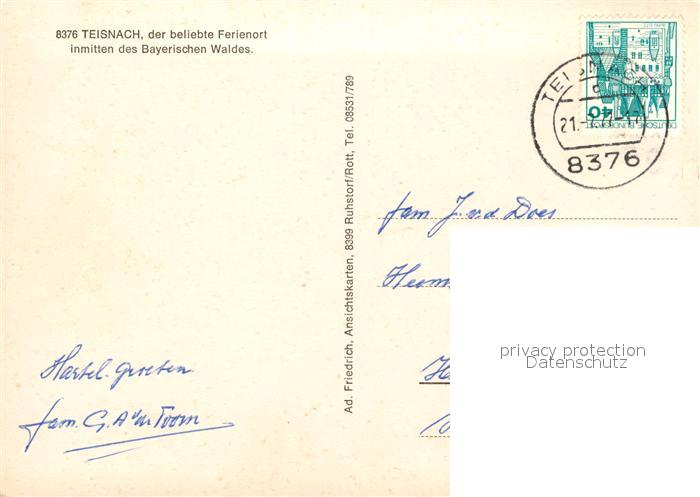 8376 TEISNACH, der beliebte Ferienort
inmitten des Bayerischen Waldes.
40
DEUTSCHE BUNDESPOST
21.-7.77-17
8376
Ad. Friedrich, Ansichtskarten, 8399 Ruhstorf/Rott, Tel. 08531/789
fam J. v.d Does
privacy protection
Datenschutz
Hartel. groeten
fam. G. A v/m Toorn